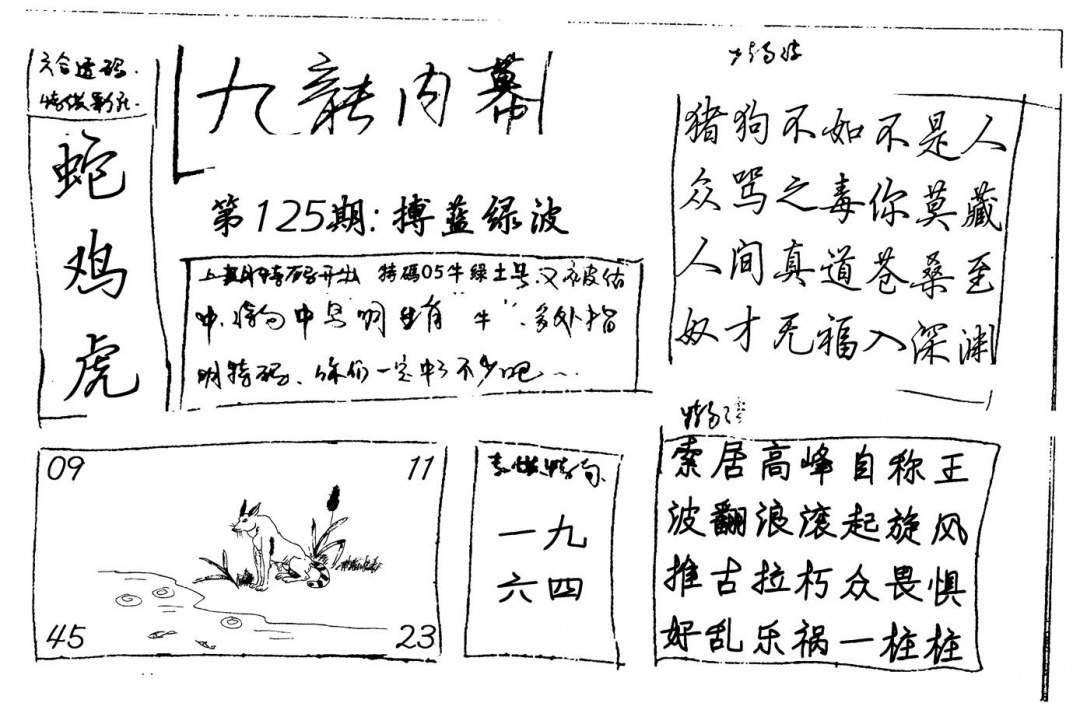 六合透码.
蛇
鸡
虎
九龍内幕
第125期:搏蓝绿波
上期特码开出 特碼05牛綠土号.又被估
中.特句中写明生肖“牛”.多处指
明特码、你们一定中了不少吧…
猪狗不如不是人
众骂之毒你莫藏
人间真道苍桑至
奴才无福入深渊
09
11
45
23
一九
六四
索居高峰自称王
波翻浪滚起旋风
推古拉朽众畏惧
好乱乐祸一桩桩